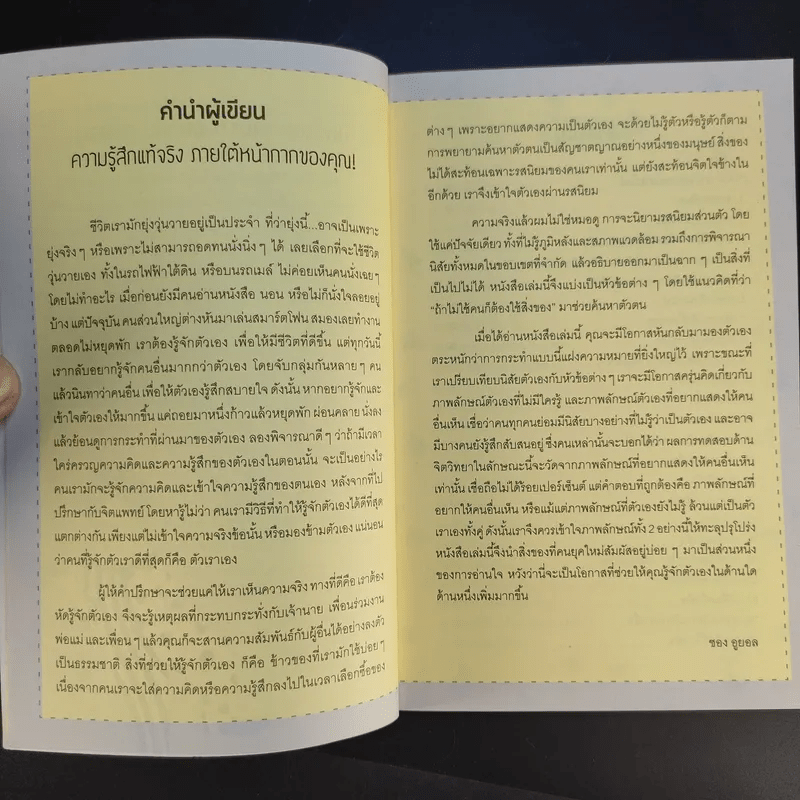 คำนำผู้เขียน
ความรู้สึกแท้จริง ภายใต้หน้ากากของคุณ!
ชีวิตเรามักยุ่งวุ่นวายอยู่เป็นประจำ ที่ว่ายุ่งนี้...อาจเป็นเพราะ
ยุ่งจริงๆ หรือเพราะไม่สามารถอดทนนั่งนิ่งๆ ได้ เลยเลือกที่จะใช้ชีวิต
วุ่นวายเอง ทั้งในรถไฟฟ้าใต้ดิน หรือบนรถเมล์ ไม่ค่อยเห็นคนนั่งเฉยๆ
โดยไม่ทำอะไร เมื่อก่อนยังมีคนอ่านหนังสือ นอน หรือไม่ก็นั่งใจลอยอยู่
บ้าง แต่ปัจจุบัน คนส่วนใหญ่ต่างหันมาเล่นสมาร์ตโฟน สมองเลยทำงาน
ตลอดไม่หยุดพัก เราต้องรู้จักตัวเอง เพื่อให้มีชีวิตที่ดีขึ้น แต่ทุกวันนี้
เรากลับอยากรู้จักคนอื่นมากกว่าตัวเอง โดยจับกลุ่มกันหลายๆ คน
แล้วนินทาว่าคนอื่น เพื่อให้ตัวเองรู้สึกสบายใจ ดังนั้น หากอยากรู้จักและ
เข้าใจตัวเองให้มากขึ้น แค่ถอยมาหนึ่งก้าวแล้วหยุดพัก ผ่อนคลาย นั่งลง
แล้วย้อนดูการกระทำที่ผ่านมาของตัวเอง ลองพิจารณาดีๆ ว่าถ้ามีเวลา
ใคร่ครวญความคิดและความรู้สึกของตัวเองในตอนนั้น จะเป็นอย่างไร
คนเรามักจะรู้จักความคิดและเข้าใจความรู้สึกของตนเอง หลังจากที่ไป
ปรึกษากับจิตแพทย์ โดยหารู้ไม่ว่า คนเรามีวิธีที่ทำให้รู้จักตัวเองได้ดีที่สุด
แตกต่างกัน เพียงแต่ไม่เข้าใจความจริงข้อนั้น หรือมองข้ามตัวเอง แน่นอน
ว่าคนที่รู้จักตัวเราดีที่สุดก็คือ ตัวเราเอง
ผู้ให้คำปรึกษาจะช่วยแค่ให้เราเห็นความจริง ทางที่ดีคือ เราต้อง
หัดรู้จักตัวเอง จึงจะรู้เหตุผลที่กระทบกระทั่งกับเจ้านาย เพื่อนร่วมงาน
พ่อแม่ และเพื่อนๆ แล้วคุณก็จะสานความสัมพันธ์กับผู้อื่นได้อย่างลงตัว
เป็นธรรมชาติ สิ่งที่ช่วยให้รู้จักตัวเอง ก็คือ ข้าวของที่เรามักใช้บ่อยๆ
เนื่องจากคนเราจะใส่ความคิดหรือความรู้สึกลงไปในเวลาเลือกซื้อของ
ต่างๆ เพราะอยากแสดงความเป็นตัวเอง จะด้วยไม่รู้ตัวหรือรู้ตัวก็ตาม
การพยายามค้นหาตัวตนเป็นสัญชาตญาณอย่างหนึ่งของมนุษย์ สิ่งของ
ไม่ได้สะท้อนเฉพาะรสนิยมของคนเราเท่านั้น แต่ยังสะท้อนจิตใจข้างใน
อีกด้วย เราจึงเข้าใจตัวเองผ่านรสนิยม
ความจริงแล้วผมไม่ใช่หมอดู การจะนิยามรสนิยมส่วนตัว โดย
ใช้แค่ปัจจัยเดียว ทั้งที่ไม่รู้ภูมิหลังและสภาพแวดล้อม รวมถึงการพิจารณา
นิสัยทั้งหมดในขอบเขตที่จำกัด แล้วอธิบายออกมาเป็นฉากๆ เป็นสิ่งที่
เป็นไปไม่ได้ หนังสือเล่มนี้จึงแบ่งเป็นหัวข้อต่างๆ โดยใช้แนวคิดที่ว่า
"ถ้าไม่ใช้คนก็ต้องใช้สิ่งของ" มาช่วยค้นหาตัวตน
เมื่อได้อ่านหนังสือเล่มนี้ คุณจะมีโอกาสหันกลับมามองตัวเอง
ตระหนักว่าการกระทำแบบนี้แฝงความหมายที่ยิ่งใหญ่ไว้ เพราะขณะที่
เราเปรียบเทียบนิสัยตัวเองกับหัวข้อต่างๆ เราจะมีโอกาสครุ่นคิดเกี่ยวกับ
ภาพลักษณ์ตัวเองที่ไม่มีใครรู้ และภาพลักษณ์ตัวเองที่อยากแสดงให้คน
อื่นเห็น เชื่อว่าคนทุกคนย่อมมีนิสัยบางอย่างที่ไม่รู้ว่าเป็นตัวเอง และอาจ
มีบางคนยังรู้สึกสับสนอยู่ ซึ่งคนเหล่านั้นจะบอกได้ว่า ผลการทดสอบด้าน
จิตวิทยาในลักษณะนี้จะวัดจากภาพลักษณ์ที่อยากแสดงให้คนอื่นเห็น
เท่านั้น เชื่อถือไม่ได้ร้อยเปอร์เซ็นต์ แต่คำตอบที่ถูกต้องคือ ภาพลักษณ์ที่
อยากให้คนอื่นเห็น หรือแม้แต่ภาพลักษณ์ที่ตัวเองยังไม่รู้ ล้วนแต่เป็นตัว
เราเองทั้งคู่ ดังนั้นเราจึงควรเข้าใจภาพลักษณ์ทั้ง 2 อย่างนี้ให้ทะลุปรุโปร่ง
หนังสือเล่มนี้จึงนำสิ่งของที่คนยุคใหม่สัมผัสอยู่บ่อยๆ มาเป็นส่วนหนึ่ง
ของการอ่านใจ หวังว่านี่จะเป็นโอกาสที่ช่วยให้คุณรู้จักตัวเองในด้านใด
ด้านหนึ่งเพิ่มมากขึ้น
ซอง อูยอล